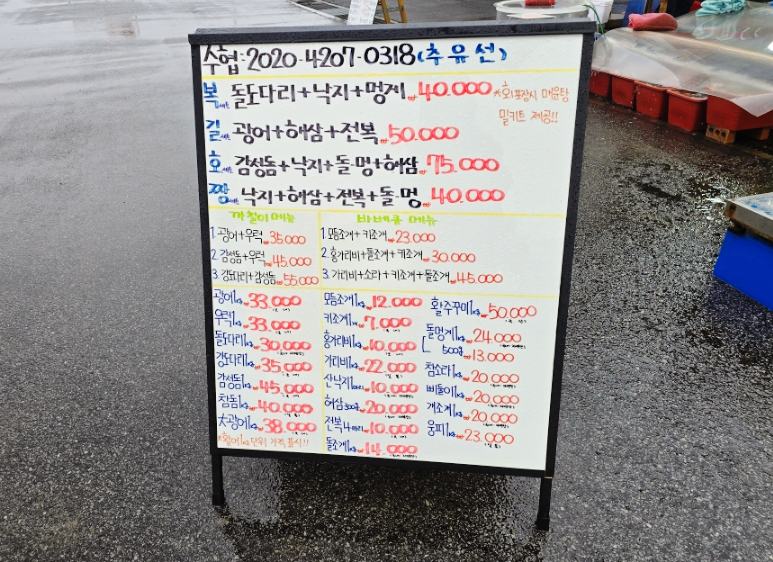 수협:2020-4207-0318(추유선)
복세트 돌도다리+낙지+멍게 40.000 *회포장시 매운탕
밀키트 제공!!
길세트 광어+해삼+전복 50.000
호세트 감성돔+낙지+돌멍+해삼 75.000
짱세트 낙지+해삼+전복+돌멍 40.000
1. 광어+우럭 35.000
2. 감성돔+우럭 45.000
3. 강도다리+감성돔 55.000
바베큐 메뉴
1. 모듬조개+키조개 23.000
2. 홍가리비+돌조개+키조개 30.000
3. 가리비+소라+키조개+돌조개 45.000
광어1kg 33.000
우럭1kg 33.000
돌도다리1kg 30.000
강도다리1kg 35.000
감성돔1kg 45.000
참돔1kg 40.000
大광어1kg 38.000
*활어1kg 단위 가격 표시!!
모듬조개1kg 12.000
키조개1kg 7.000
홍가리비1kg 10.000
가리비1kg 22.000
산낙지1마리 10.000
해삼300g 20.000
전복4마리 10.000
돌조개1kg 14.000
활주꾸미1kg 50.000
돌멍게1kg 24.000
500g 13.000
참소라1kg 20.000
삐뚤이1kg 20.000
개조개1kg 20.000
웅피1kg 23.000